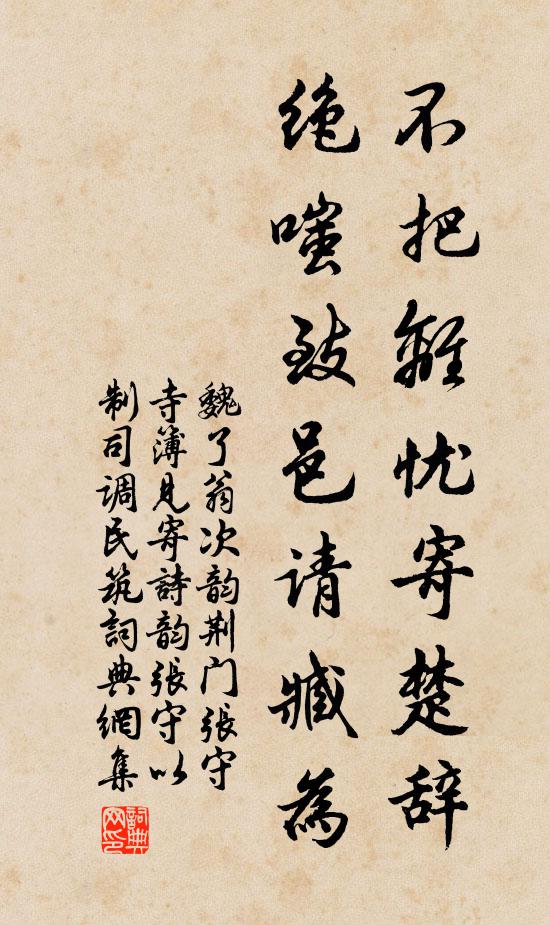 不把離忧寄楚辞
绝嗤致邑请臧為
魏了翁次韵荆门張守
寺簿見寄詩韵張守以
制司调民筑詞典網集
詞典網印